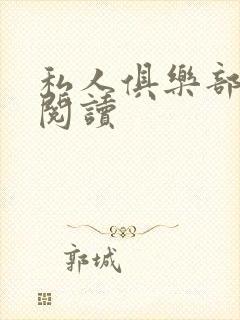 私人俱樂部
閱讀
郭城